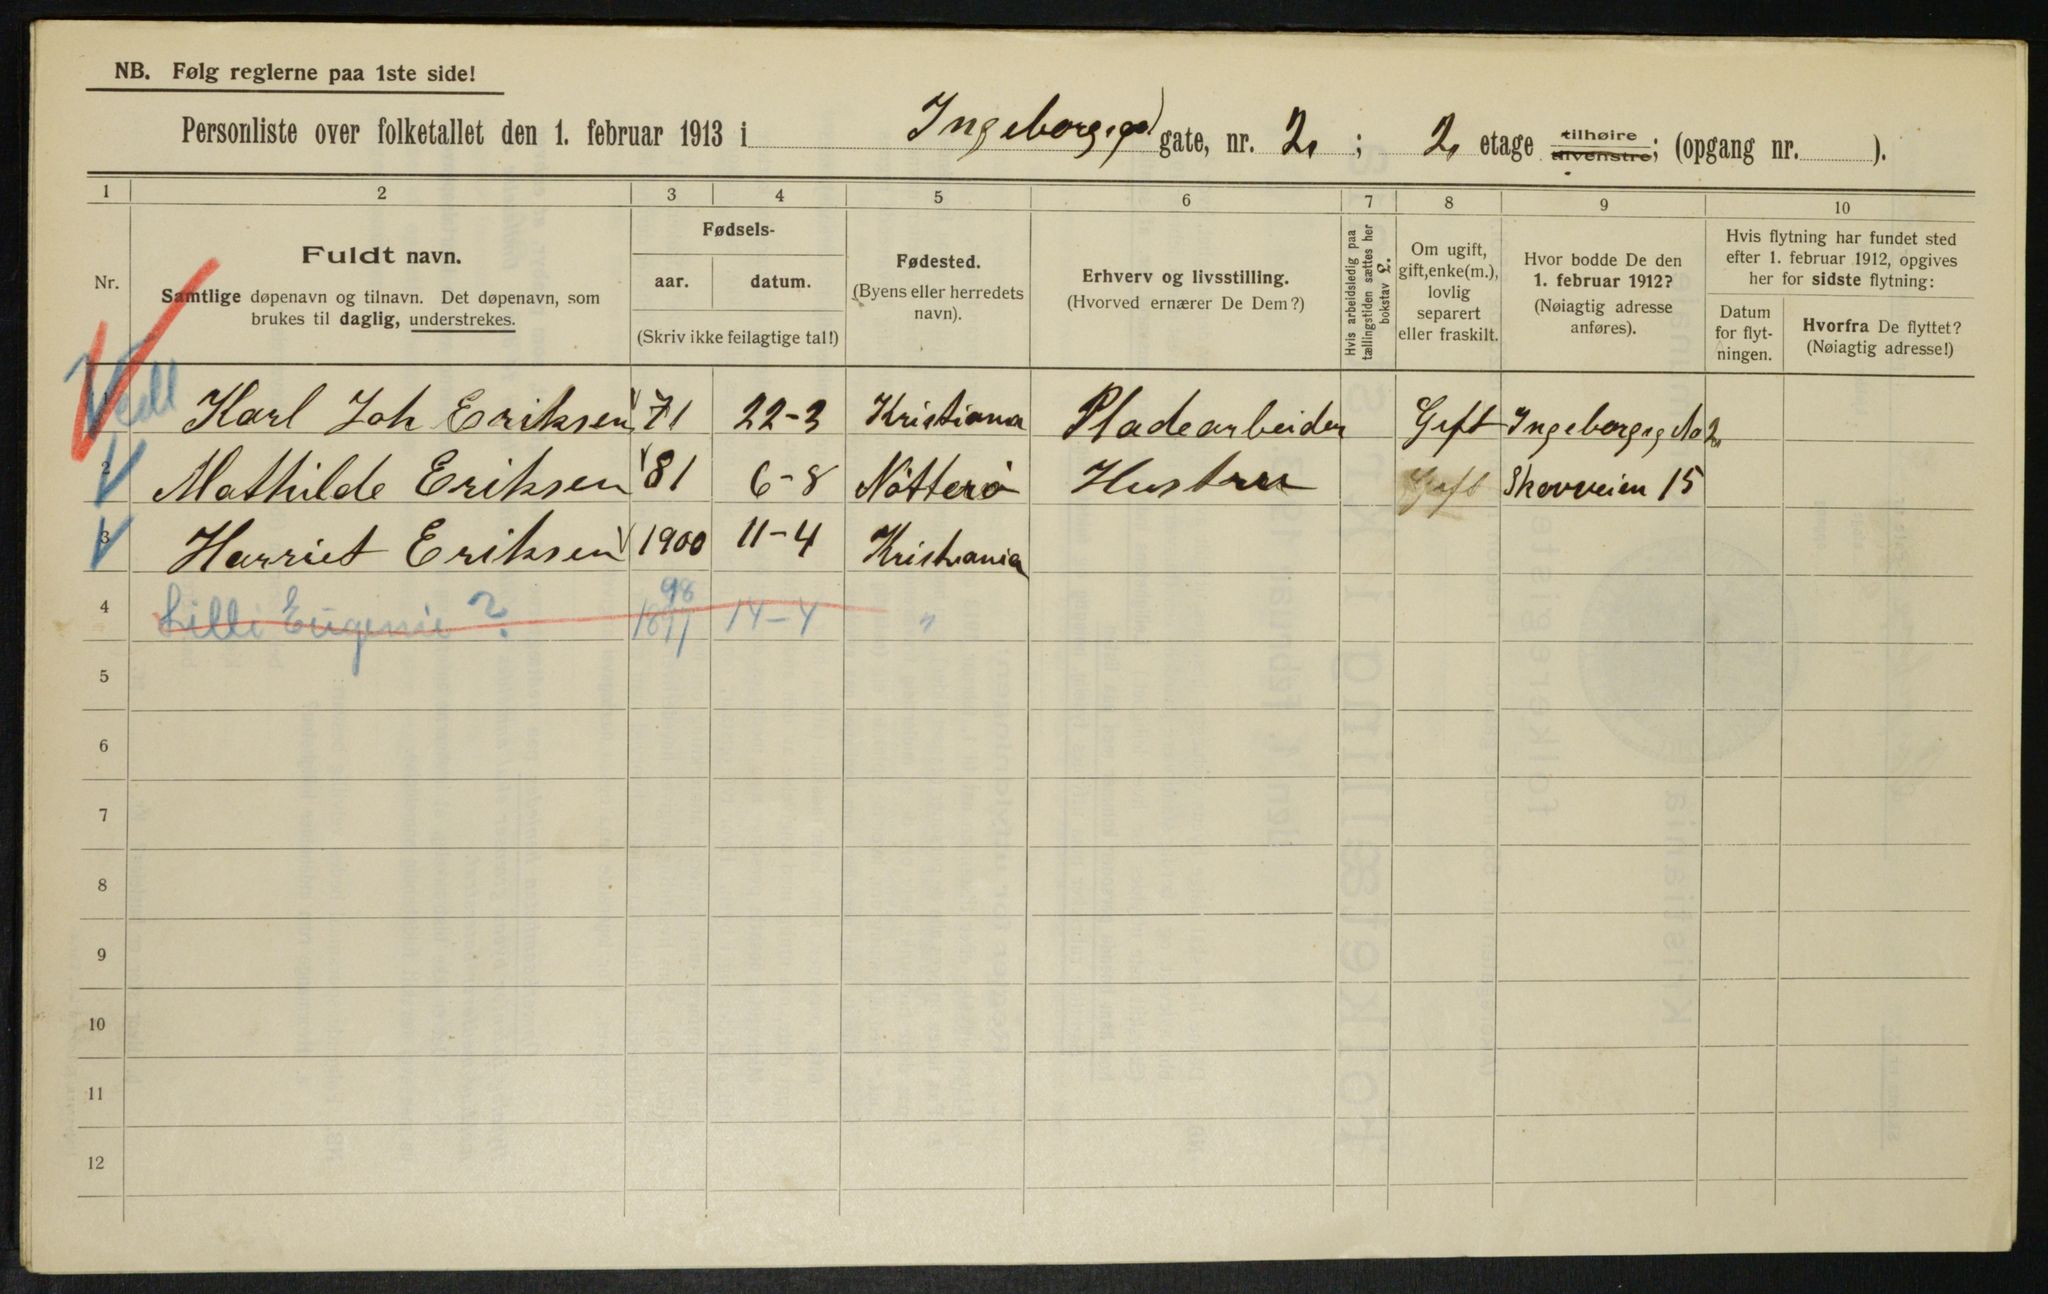 NB. Følg reglerne paa 1ste side!
Personliste over folketallet den 1. februar 1913 i Ingeborgsgd gate, nr. 2, ; 2, etage tilhøire tilvenstre; (opgang nr. ).
1 2 3 4 5 6 7 8 9 10
Nr.
Fuldt navn.
Samtlige døpenavn og tilnavn. Det døpenavn, som
brukes til daglig, understrekes.
Fødsels-
aar. datum.
(Skriv ikke feilagtige tal!)
Fødested.
(Byens eller herredets
navn).
Erhverv og livsstilling.
(Hvorved ernærer De Dem?)
Hvis arbeidsledig paa
tællingstiden sættes her
bokstav £.
Om ugift,
gift, enke(m.),
lovlig
separert
eller fraskilt.
Hvor bodde De den
1. februar 1912?
(Nøiagtig adresse
anføres).
Hvis flytning har fundet sted
efter 1. februar 1912, opgives
her for sidste flytning:
Datum
for flyt-
ningen.
Hvorfra De flyttet?
(Nøiagtig adresse!)
Karl Joh Eriksen 71 22-3 Kristiana Pladearbeider Gift Ingeborgsg No 2
2 Mathilde Eriksen 81 6-8 Nötterö Hustru Gift Skovveien 15
3 Harriet Eriksen 1900 11-4 Kristiania
98
4 Lilli Eugenie ? 1897 14-4 "
5
6
7
8
9
10
11
12